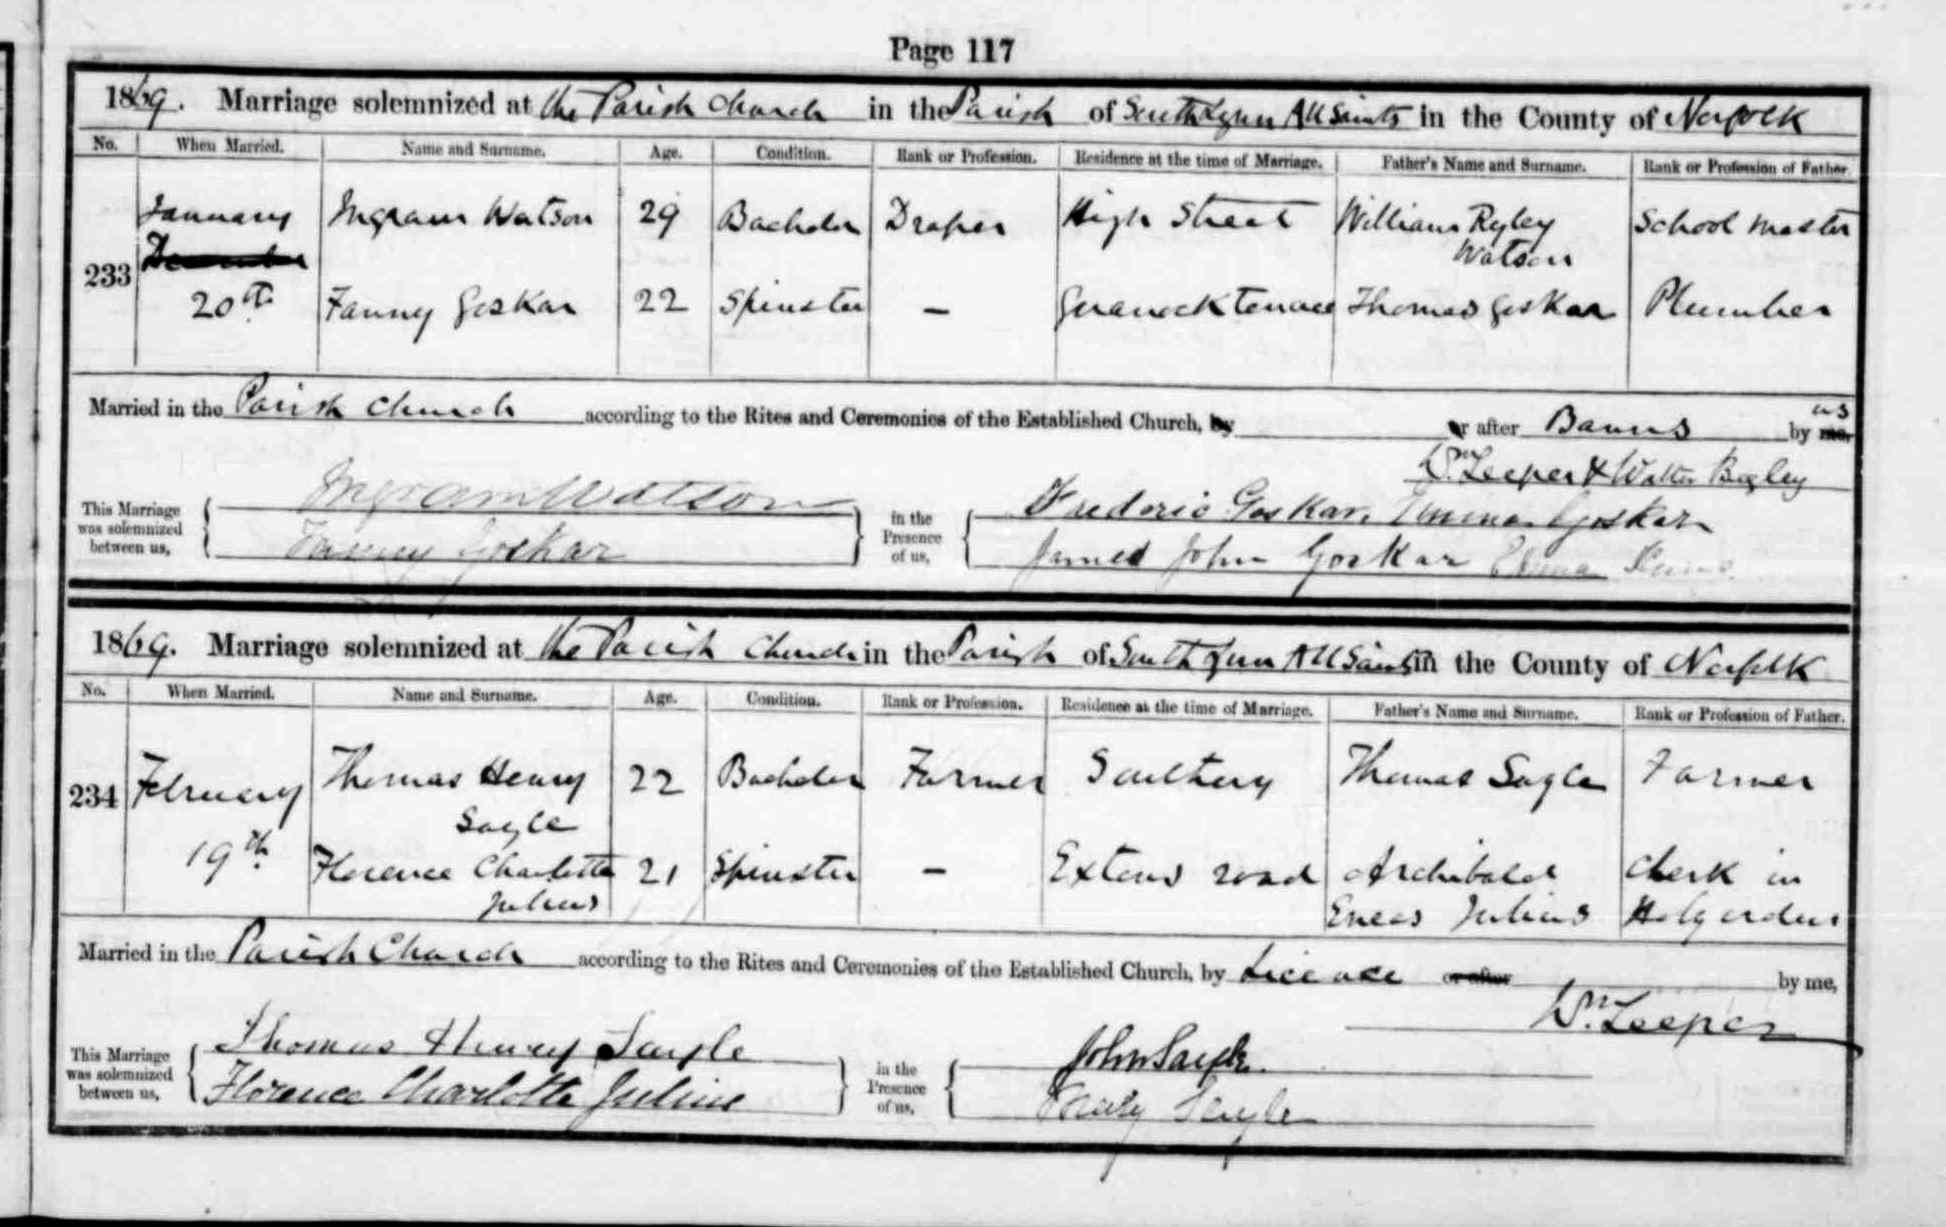 Page 117
1869. Marriage solemnized at the Parish Church in the Parish of South Lynn All Saints in the County of Norfolk
No. When Married. Name and Surname. Age. Condition. Rank or Profession. Residence at the time of Marriage. Father's Name and Surname. Rank or Profession of Father.
January Ingram Watson 29 Bachelor Draper High Street William Ryley School Master
233 December Watson
20th Fanny Goskar 22 Spinster – terrace Thomas Goskar Plumber
Married in the Parish Church according to the Rites and Ceremonies of the Established Church, by or after Banns by me, us
Wm Leeper & Walter Begley
This Marriage was solemnized between us, Ingram Watson in the Presence of us, Frederic Goskar, Emma Goskar
Fanny Goskar James John Goskar
1869. Marriage solemnized at the Parish Church in the Parish of South Lynn All Saints in the County of Norfolk
No. When Married. Name and Surname. Age. Condition. Rank or Profession. Residence at the time of Marriage. Father's Name and Surname. Rank or Profession of Father.
234 February Thomas Henry 22 Bachelor Farmer Southery Thomas Sayle Farmer
Sayle
19th Florence Charlotte 21 Spinster – Extons road Archibald Clerk in
Julius Eneas Julius Holy orders
Married in the Parish Church according to the Rites and Ceremonies of the Established Church, by Licence or after by me,
Wm Leeper
This Marriage was solemnized between us, Thomas Henry Sayle in the Presence of us, John Sayle.
Florence Charlotte Julius Sayle